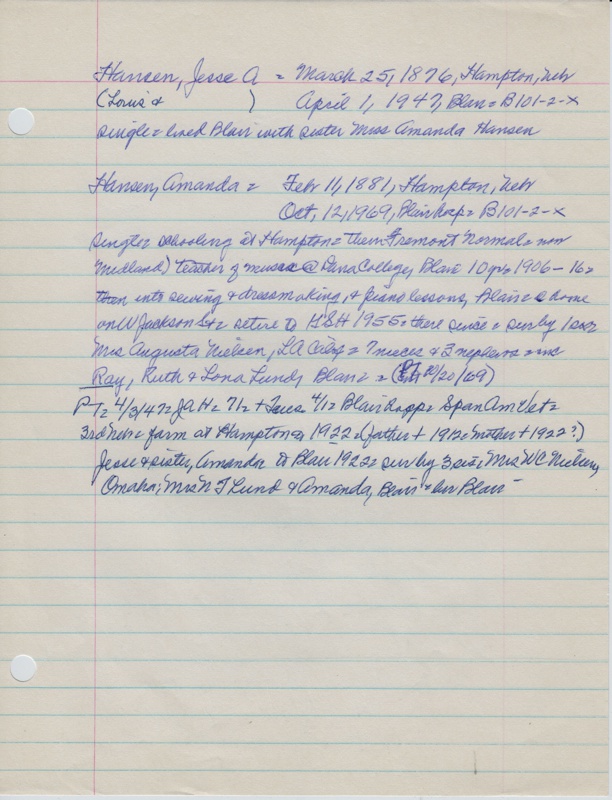 Hansen, Jesse A = March 25, 1876, Hampton, Nebr
(Louis & ) April 1, 1947, Blair = B101-2-X
single = lived Blair with sister Miss Amanda Hansen
Hansen, Amanda = Feb 11, 1881, Hampton, Nebr
Oct, 12, 1969, Blair hosp = B101-2-X
single = schooling at Hampton = then Fremont Normal = now
Midland) teacher of music @ Dana College, Blair 10 yrs 1906-16 =
then into sewing & dressmaking, & piano lessons, Blair = home
on W Jackson St = retire to 1955 = there since = sur by 1 sister
Mrs Augusta Nielsen, LA Calif = 7 nieces & 3 nephews = inc
Ray, Ruth & Lona Lund, Blair = (PT 10/20/69)
PT = 4/3/47 = JAH = 71 = + Tues 4/1 = Blair hosp = Span Am Vet =
3rd Neb = farm at Hampton = 1922 = (father + 1912 = mother + 1922?)
Jesse & sister, Amanda to Blair 1922 = sur by 3 sis, Mrs WC Nielsen,
Omaha; Mrs N T Lund & Amanda, Blair = bur Blair